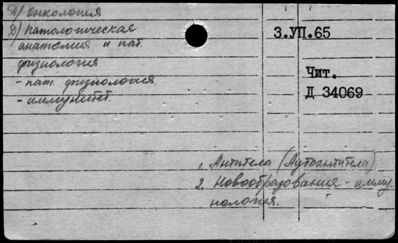 а) онкология
б) патологическая
анатомия и пат.
физиология
- пат. физиология
- иммунитет.
3.УП.65
Чит.
Д 34069
1. Антитела (Аутоантитела)
2. Новообразования - имму
нология.